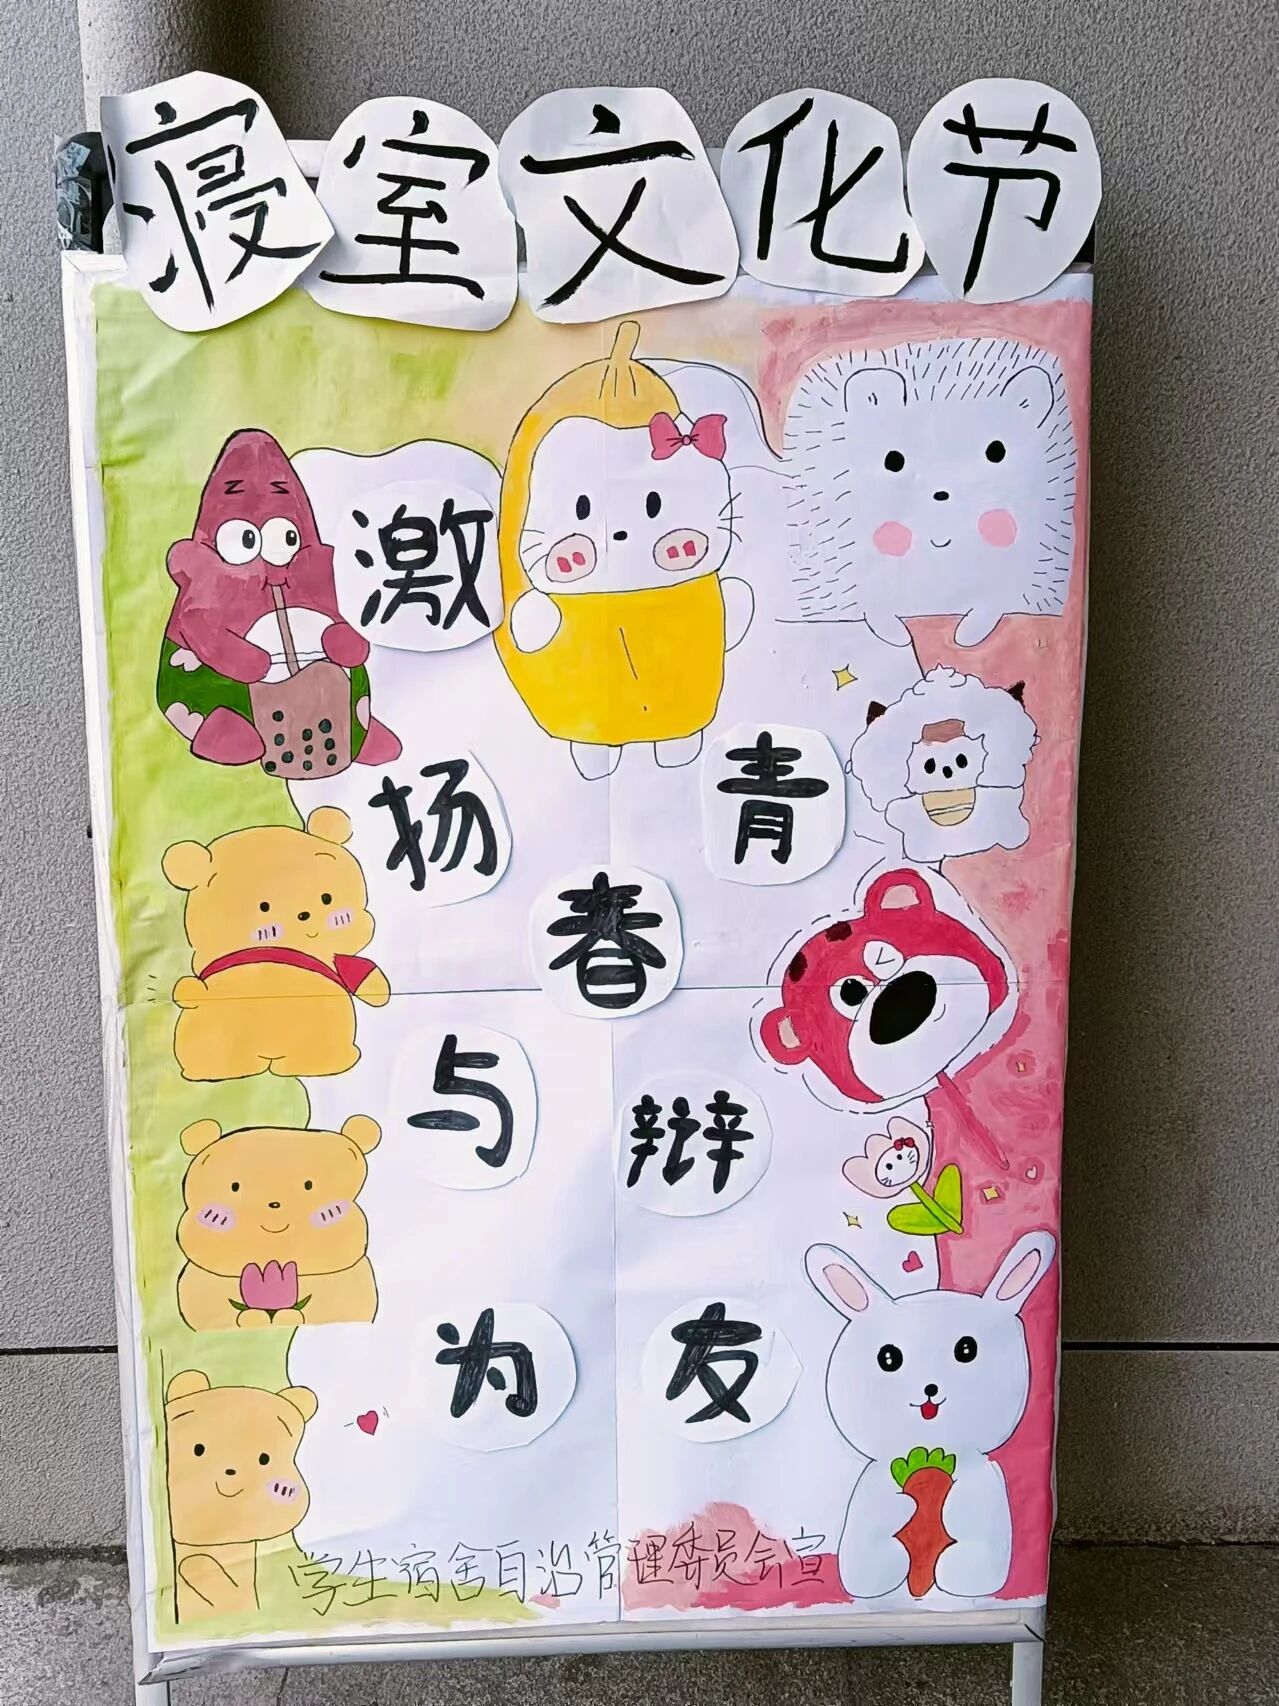 寝室文化节
激扬青春
与辩为友
学生宿舍自治管理委员会宣